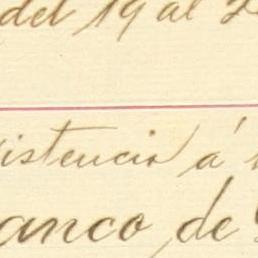 del 19 al 2
istencia á
anco de